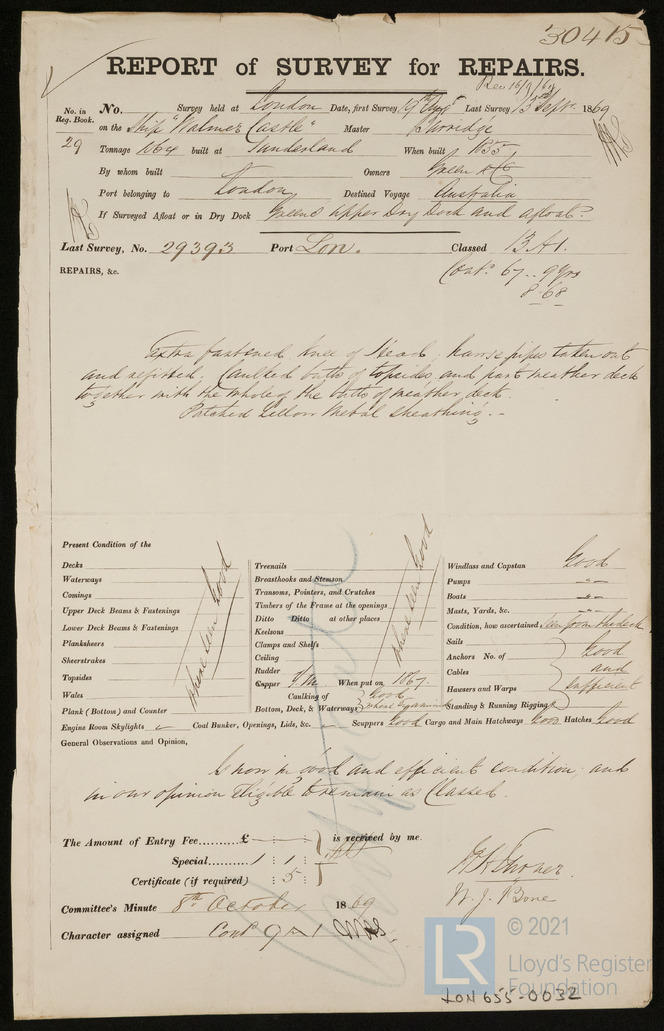 30415
REPORT of SURVEY for REPAIRS.
Rec 16/9/69
No. in Reg. Book. No. Survey held at London Date, first Survey 19th Augt Last Survey 15th Septr. 1869
29 on the Ship "Walmer Castle" Master
Tonnage 1064 built at Sunderland When built 1855
By whom built Owners Green & Co
Port belonging to London Destined Voyage Australia
If Surveyed Afloat or in Dry Dock Greens Upper Dry Dock and afloat?
Last Survey, No. 29393 Port Lon. Classed 13 A 1.
REPAIRS, &c. Contd. 67 .. 9 Yrs
8.68
Extra fastened knee of Head, hawse pipes taken out
and refitted. Caulked butts of topsides and part weather deck
together with the whole of the butts of weather deck.
Patched Yellow Metal sheathing. -
Present Condition of the
Decks
Waterways
Comings
Upper Deck Beams & Fastenings
Lower Deck Beams & Fastenings
Planksheers
Sheerstrakes
Topsides
Wales
Plank (Bottom) and Counter
where seen Good
Treenails
Breasthooks and Stemson
Transoms, Pointers, and Crutches
Timbers of the Frame at the openings
Ditto Ditto at other places
Keelsons
Clamps and Shelfs
Ceiling
Rudder
where seen Good
Copper Y.M. When put on 1867.
Caulking of Bottom, Deck, & Waterways Good where examined
Windlass and Capstan Good
Pumps -"-
Boats -"-
Masts, Yards, &c. -"-
Condition, how ascertained Seen from the deck
Sails
Anchors No. of
Cables
Hawsers and Warps
Standing & Running Rigging
Good and sufficient
Engine Room Skylights Coal Bunker, Openings, Lids, &c. Scuppers Good Cargo and Main Hatchways Good Hatches Good
General Observations and Opinion,
Is now in good and efficient condition, and
in our opinion eligible to remain as Classed.
The Amount of Entry Fee......... £ is received by me.
Special......... 1 : 1 :
Certificate (if required) : 5 :
W. J. Bone
Committee's Minute 8th October 1869
Character assigned Contd 9 A 1
© 2021
LR
Lloyd's Register
Foundation
LON 655-0032